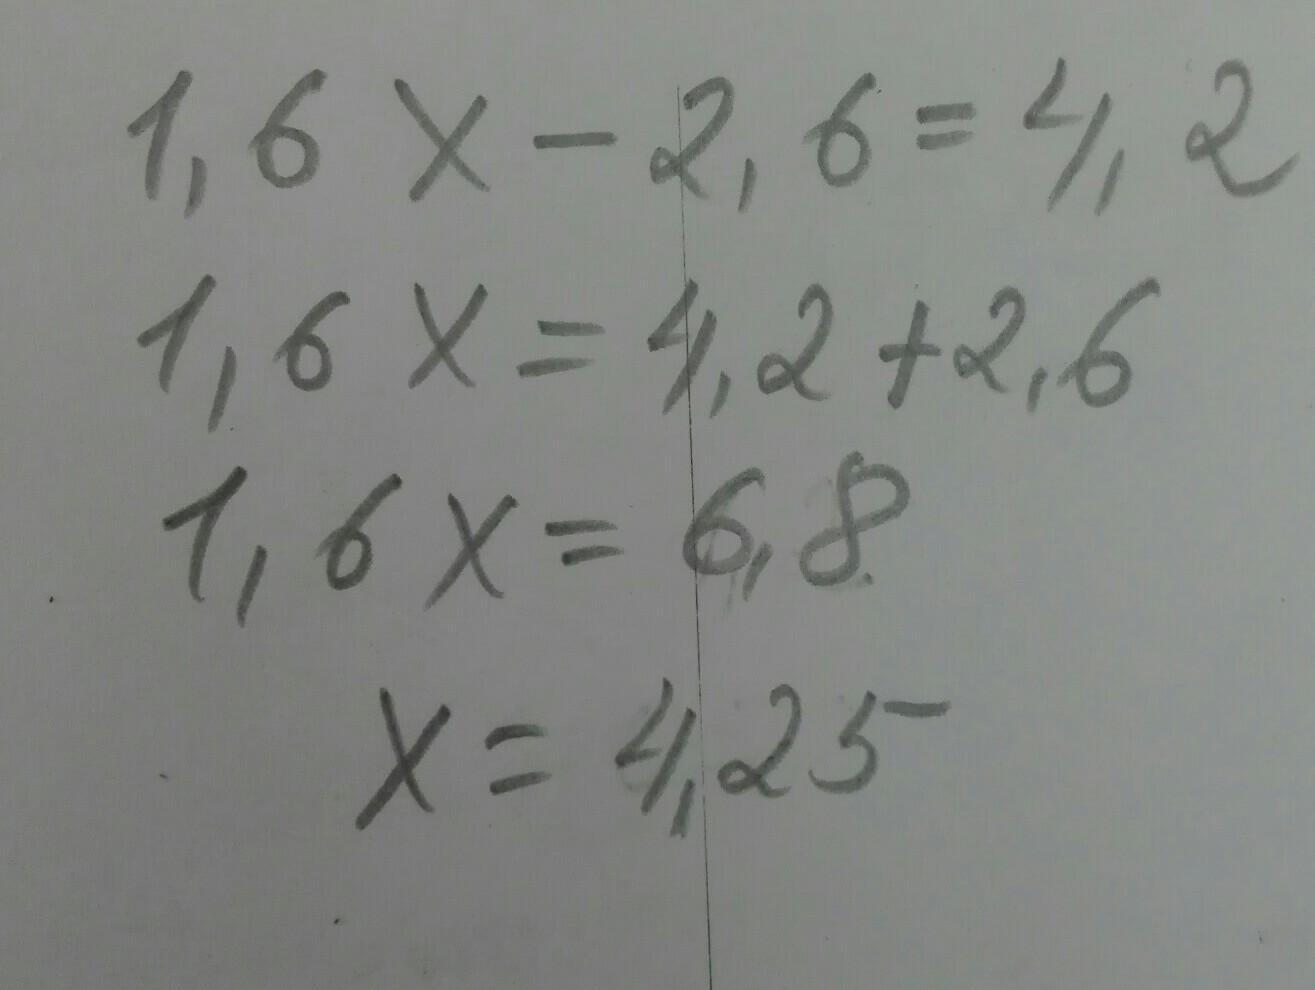 1,6 x - 2,6 = 4,2
1,6 x = 4,2 + 2,6
1,6 x = 6,8
x = 4,25